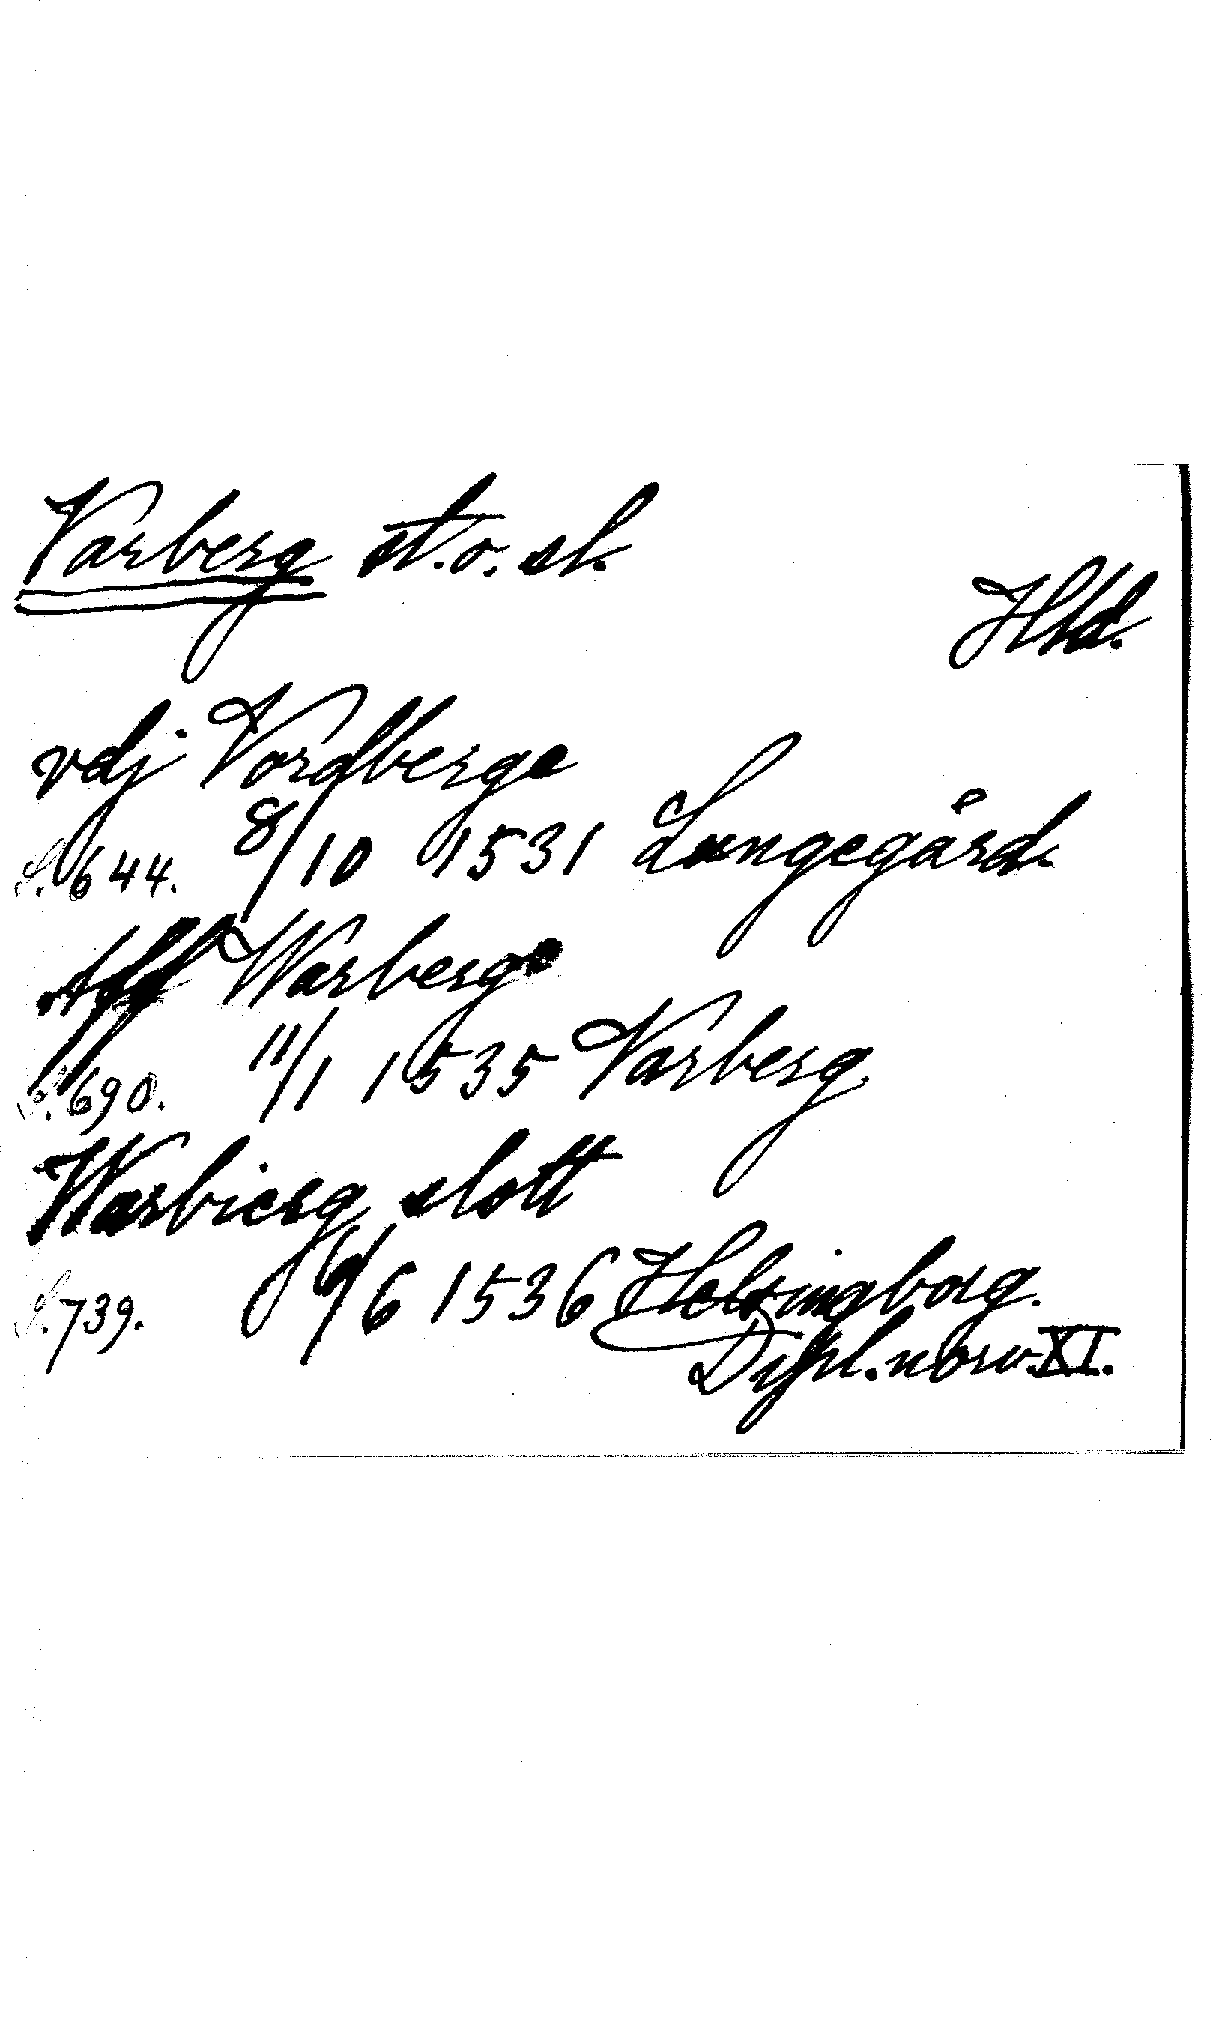 Varberg st. o. sl.
Hld.
vdj Vordberge
S. 644. 8/10 1531 Lungegård.
Aff Warberge
S. 690. 11/1 1535 Varberg
Warbierg slott
S. 739. 6/6 1536 Helsingborg.
Dipl. norv. XI.